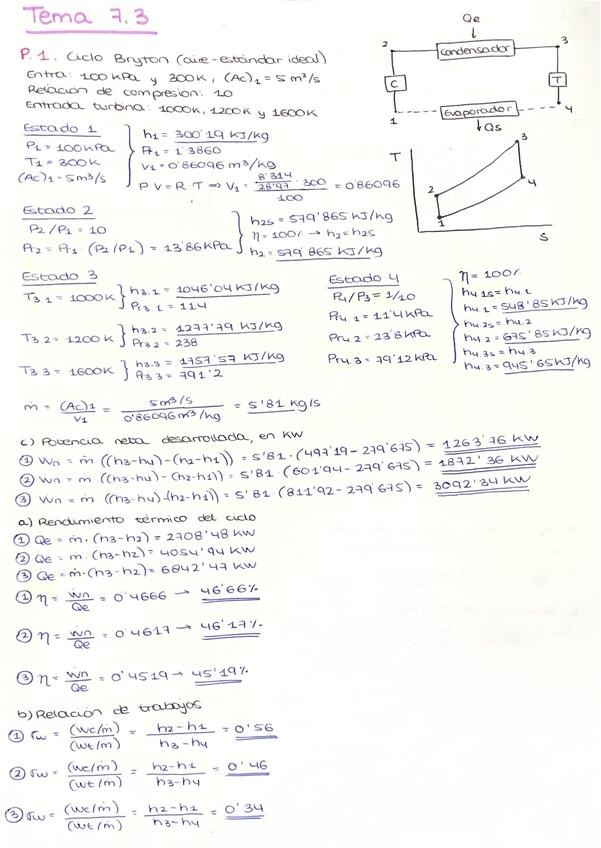 Tema 7.3
P.1. Ciclo Bryton (aire-estándar ideal)
Entra: 100 kPa y 300K, (Ac)1 = 5 m³/s
Relación de compresion: 10
Entrada turbina: 1000K, 1200K y 1600K
Qe
2
Condensador
3
C
T
1
Evaporador
4
Qs
T
3
2
4
1
S
Estado 1
P1 = 100 kPa
T1 = 300K
(Ac)1 = 5m³/s
h1 = 300'19 KJ/kg
Pr1 = 1'3860
V1 = 0'86096 m³/kg
P V = R·T ⇒ V1 = (8'314/28'97 · 300)/100 = 0'86096
Estado 2
P2/P1 = 10
Pr2 = Pr1 (P2/P1) = 13'86 kPa
h2s = 579'865 KJ/kg
η = 100% → h2 = h2s
h2 = 579'865 KJ/kg
Estado 3
T3 1 = 1000K
h3.1 = 1046'04 KJ/kg
Pr3 1 = 114
T3 2 = 1200K
h3.2 = 1277'79 KJ/kg
Pr3 2 = 238
T3 3 = 1600K
h3.3 = 1757'57 KJ/kg
Pr3 3 = 791'2
Estado 4
P4/P3 = 1/10
Pr4 1 = 11'4 kPa
Pr4.2 = 23'8 kPa
Pr4.3 = 79'12 kPa
η = 100%
h4 1s = h4.1
h4 1 = 548'85 KJ/kg
h4 2s = h4.2
h4.2 = 675'85 KJ/kg
h4 3s = h4 3
h4.3 = 945'65 KJ/kg
ṁ = (Ac)1/V1 = 5m³/s / 0'86096 m³/kg = 5'81 kg/s
c) Potencia neta desarrollada, en KW
① Wn = ṁ ((h3-h4)-(h2-h1)) = 5'81·(497'19-279'675) = 1263'76 KW
② Wn = m ((h3-h4)-(h2-h1)) = 5'81 (601'94-279'675) = 1872'36 KW
③ Wn = m ((h3-h4)-(h2-h1)) = 5'81 (811'92-279'675) = 3092'34 KW
a) Rendimiento térmico del ciclo
① Qe = ṁ·(h3-h2) = 2708'48 KW
② Qe = m·(h3-h2) = 4054'94 KW
③ Qe = ṁ·(h3-h2) = 6842'47 KW
① η = Ẇn/Qe = 0'4666 → 46'66%
② η = Ẇn/Qe = 0'4617 → 46'17%
③ η = Ẇn/Qe = 0'4519 → 45'19%
b) Relación de trabajos
① rw = (Wc/ṁ)/(Wt/ṁ) = h2-h1/h3-h4 = 0'56
② rw = (Wc/ṁ)/(Wt/ṁ) = h2-h1/h3-h4 = 0'46
③ rw = (Wc/ṁ)/(Wt/ṁ) = h2-h1/h3-h4 = 0'34